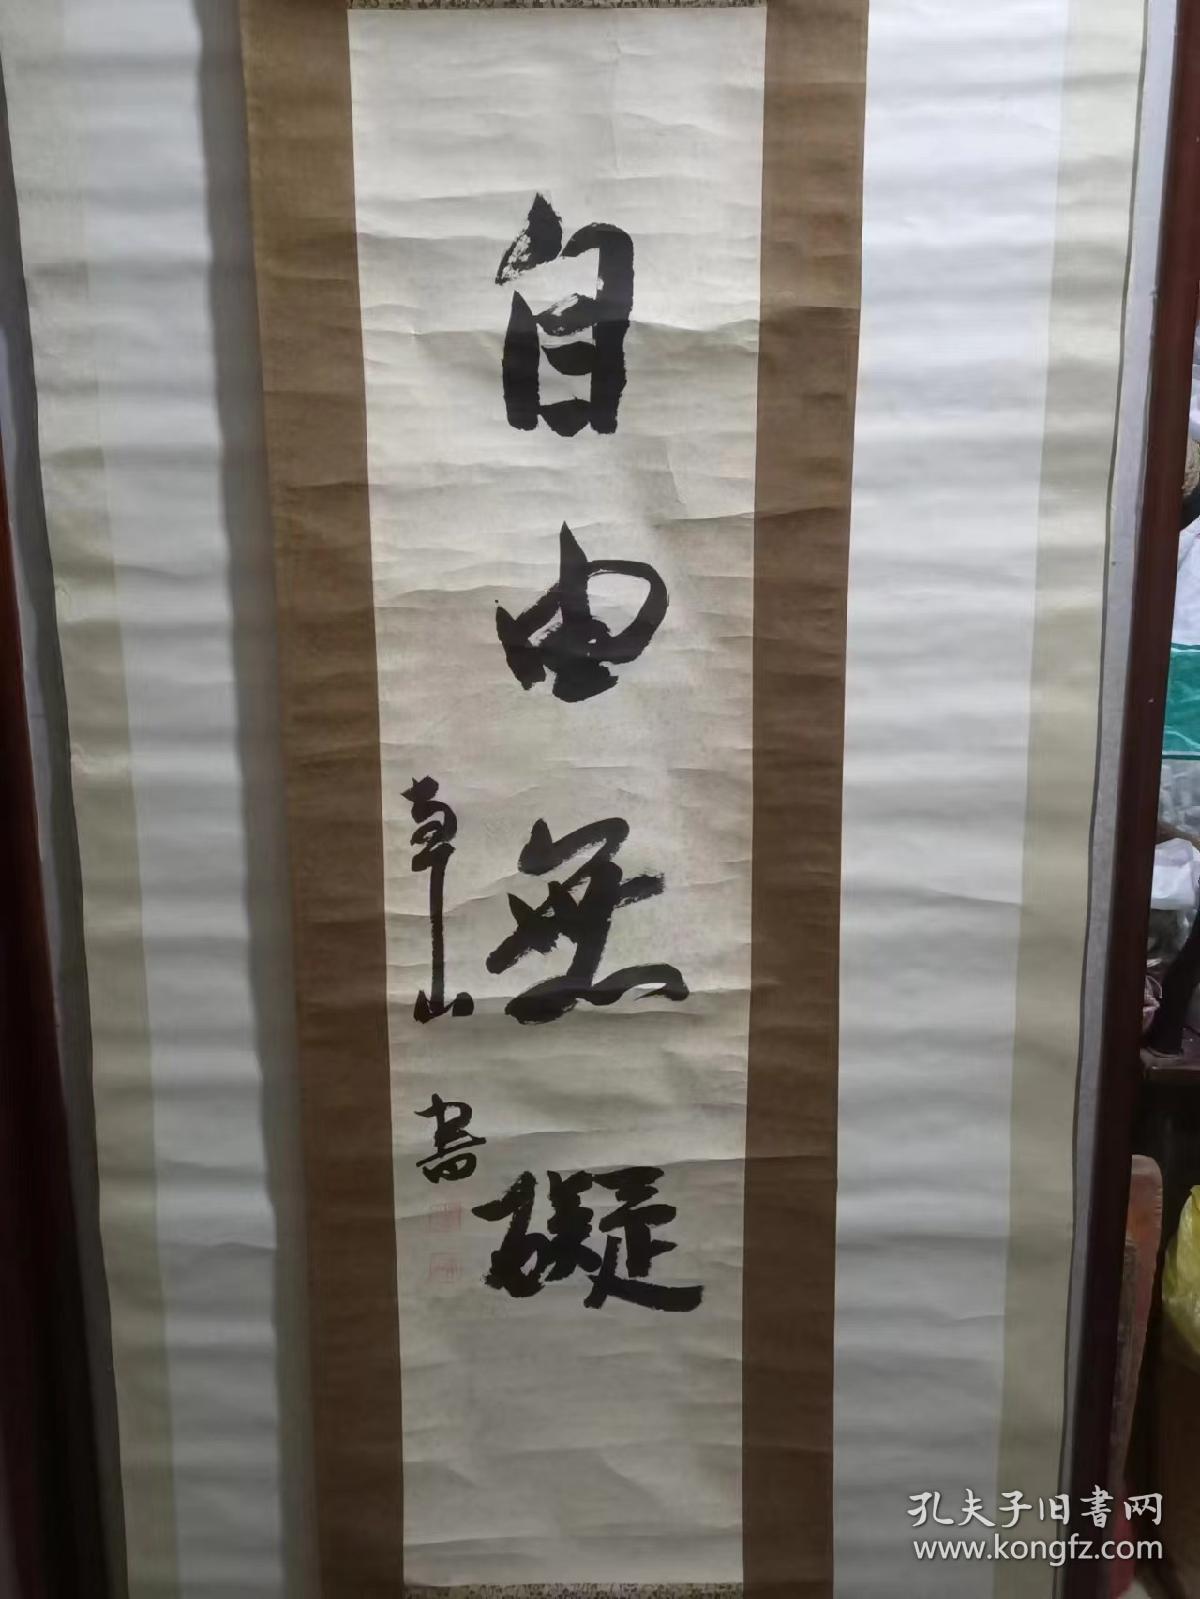 自由無礙
山書
孔夫子旧書网
www.kongfz.com